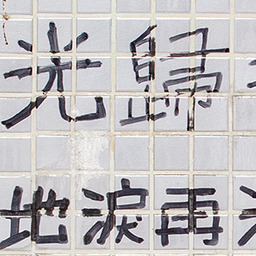 光歸
地淚再